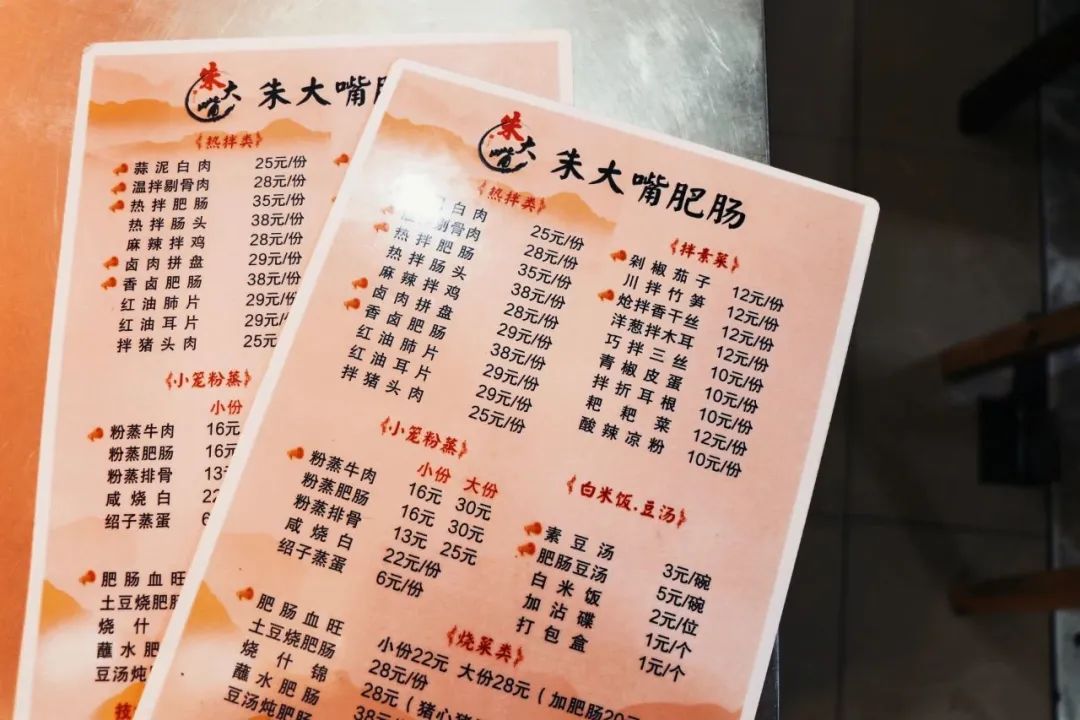 朱大嘴
朱大嘴肥
《热拌类》
蒜泥白肉 25元/份
温拌剔骨肉 28元/份
热拌肥肠 35元/份
热拌肠头 38元/份
麻辣拌鸡 28元/份
卤肉拼盘 29元/份
香卤肥肠 38元/份
红油肺片 29元/份
红油耳片 29元/
拌猪头肉 25元
《小笼粉蒸》
小份
粉蒸牛肉 16元
粉蒸肥肠 16元
粉蒸排骨 13
咸烧白 22
绍子蒸蛋 6
肥肠血旺
土豆烧肥肠
烧什
蘸水肥
豆汤炖
朱大嘴
朱大嘴肥肠
《热拌类》
白肉 25元/份
剔骨肉 28元/份
热拌肥肠 35元/份
热拌肠头 38元/份
麻辣拌鸡 28元/份
卤肉拼盘 29元/份
香卤肥肠 38元/份
红油肺片 29元/份
红油耳片 29元/份
拌猪头肉 25元/份
《小笼粉蒸》
小份 大份
粉蒸牛肉 16元 30元
粉蒸肥肠 16元 30元
粉蒸排骨 13元 25元
咸烧白 22元/份
绍子蒸蛋 6元/份
《烧菜类》
肥肠血旺 小份22元 大份28元(加肥肠20元
土豆烧肥肠 28元/份
烧什锦 28元(猪心猪
蘸水肥肠 38元
豆汤炖肥肠
《拌素菜》
剁椒茄子 12元/份
川拌竹笋 12元/份
炝拌香干丝 12元/份
洋葱拌木耳 12元/份
巧拌三丝 10元/份
青椒皮蛋 10元/份
拌折耳根 10元/份
粑粑菜 12元/份
酸辣凉粉 10元/份
《白米饭.豆汤》
素豆汤 3元/碗
肥肠豆汤 5元/碗
白米饭 2元/位
加沾碟 1元/个
打包盒 1元/个